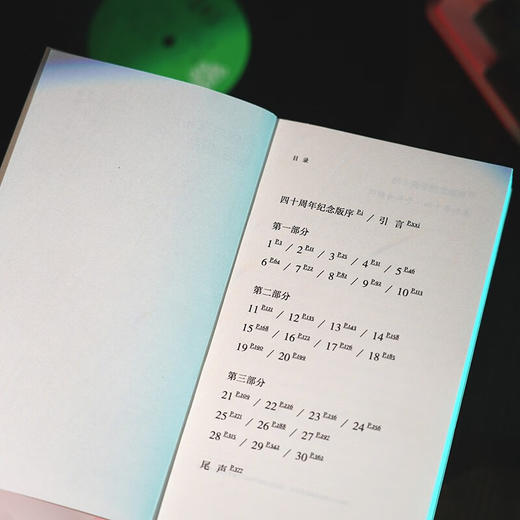 目 录
四十周年纪念版序 P.i / 引 言 P.xxi
第一部分
1 P.1 / 2 P.11 / 3 P.25 / 4 P.31 / 5 P.46
6 P.64 / 7 P.72 / 8 P.82 / 9 P.92 / 10 P.113
第二部分
11 P.121 / 12 P.135 / 13 P.143 / 14 P.158
15 P.168 / 16 P.172 / 17 P.176 / 18 P.185
19 P.190 / 20 P.199
第三部分
21 P.209 / 22 P.226 / 23 P.236 / 24 P.256
25 P.271 / 26 P.288 / 27 P.297
28 P.315 / 29 P.342 / 30 P.362
尾 声 P.377